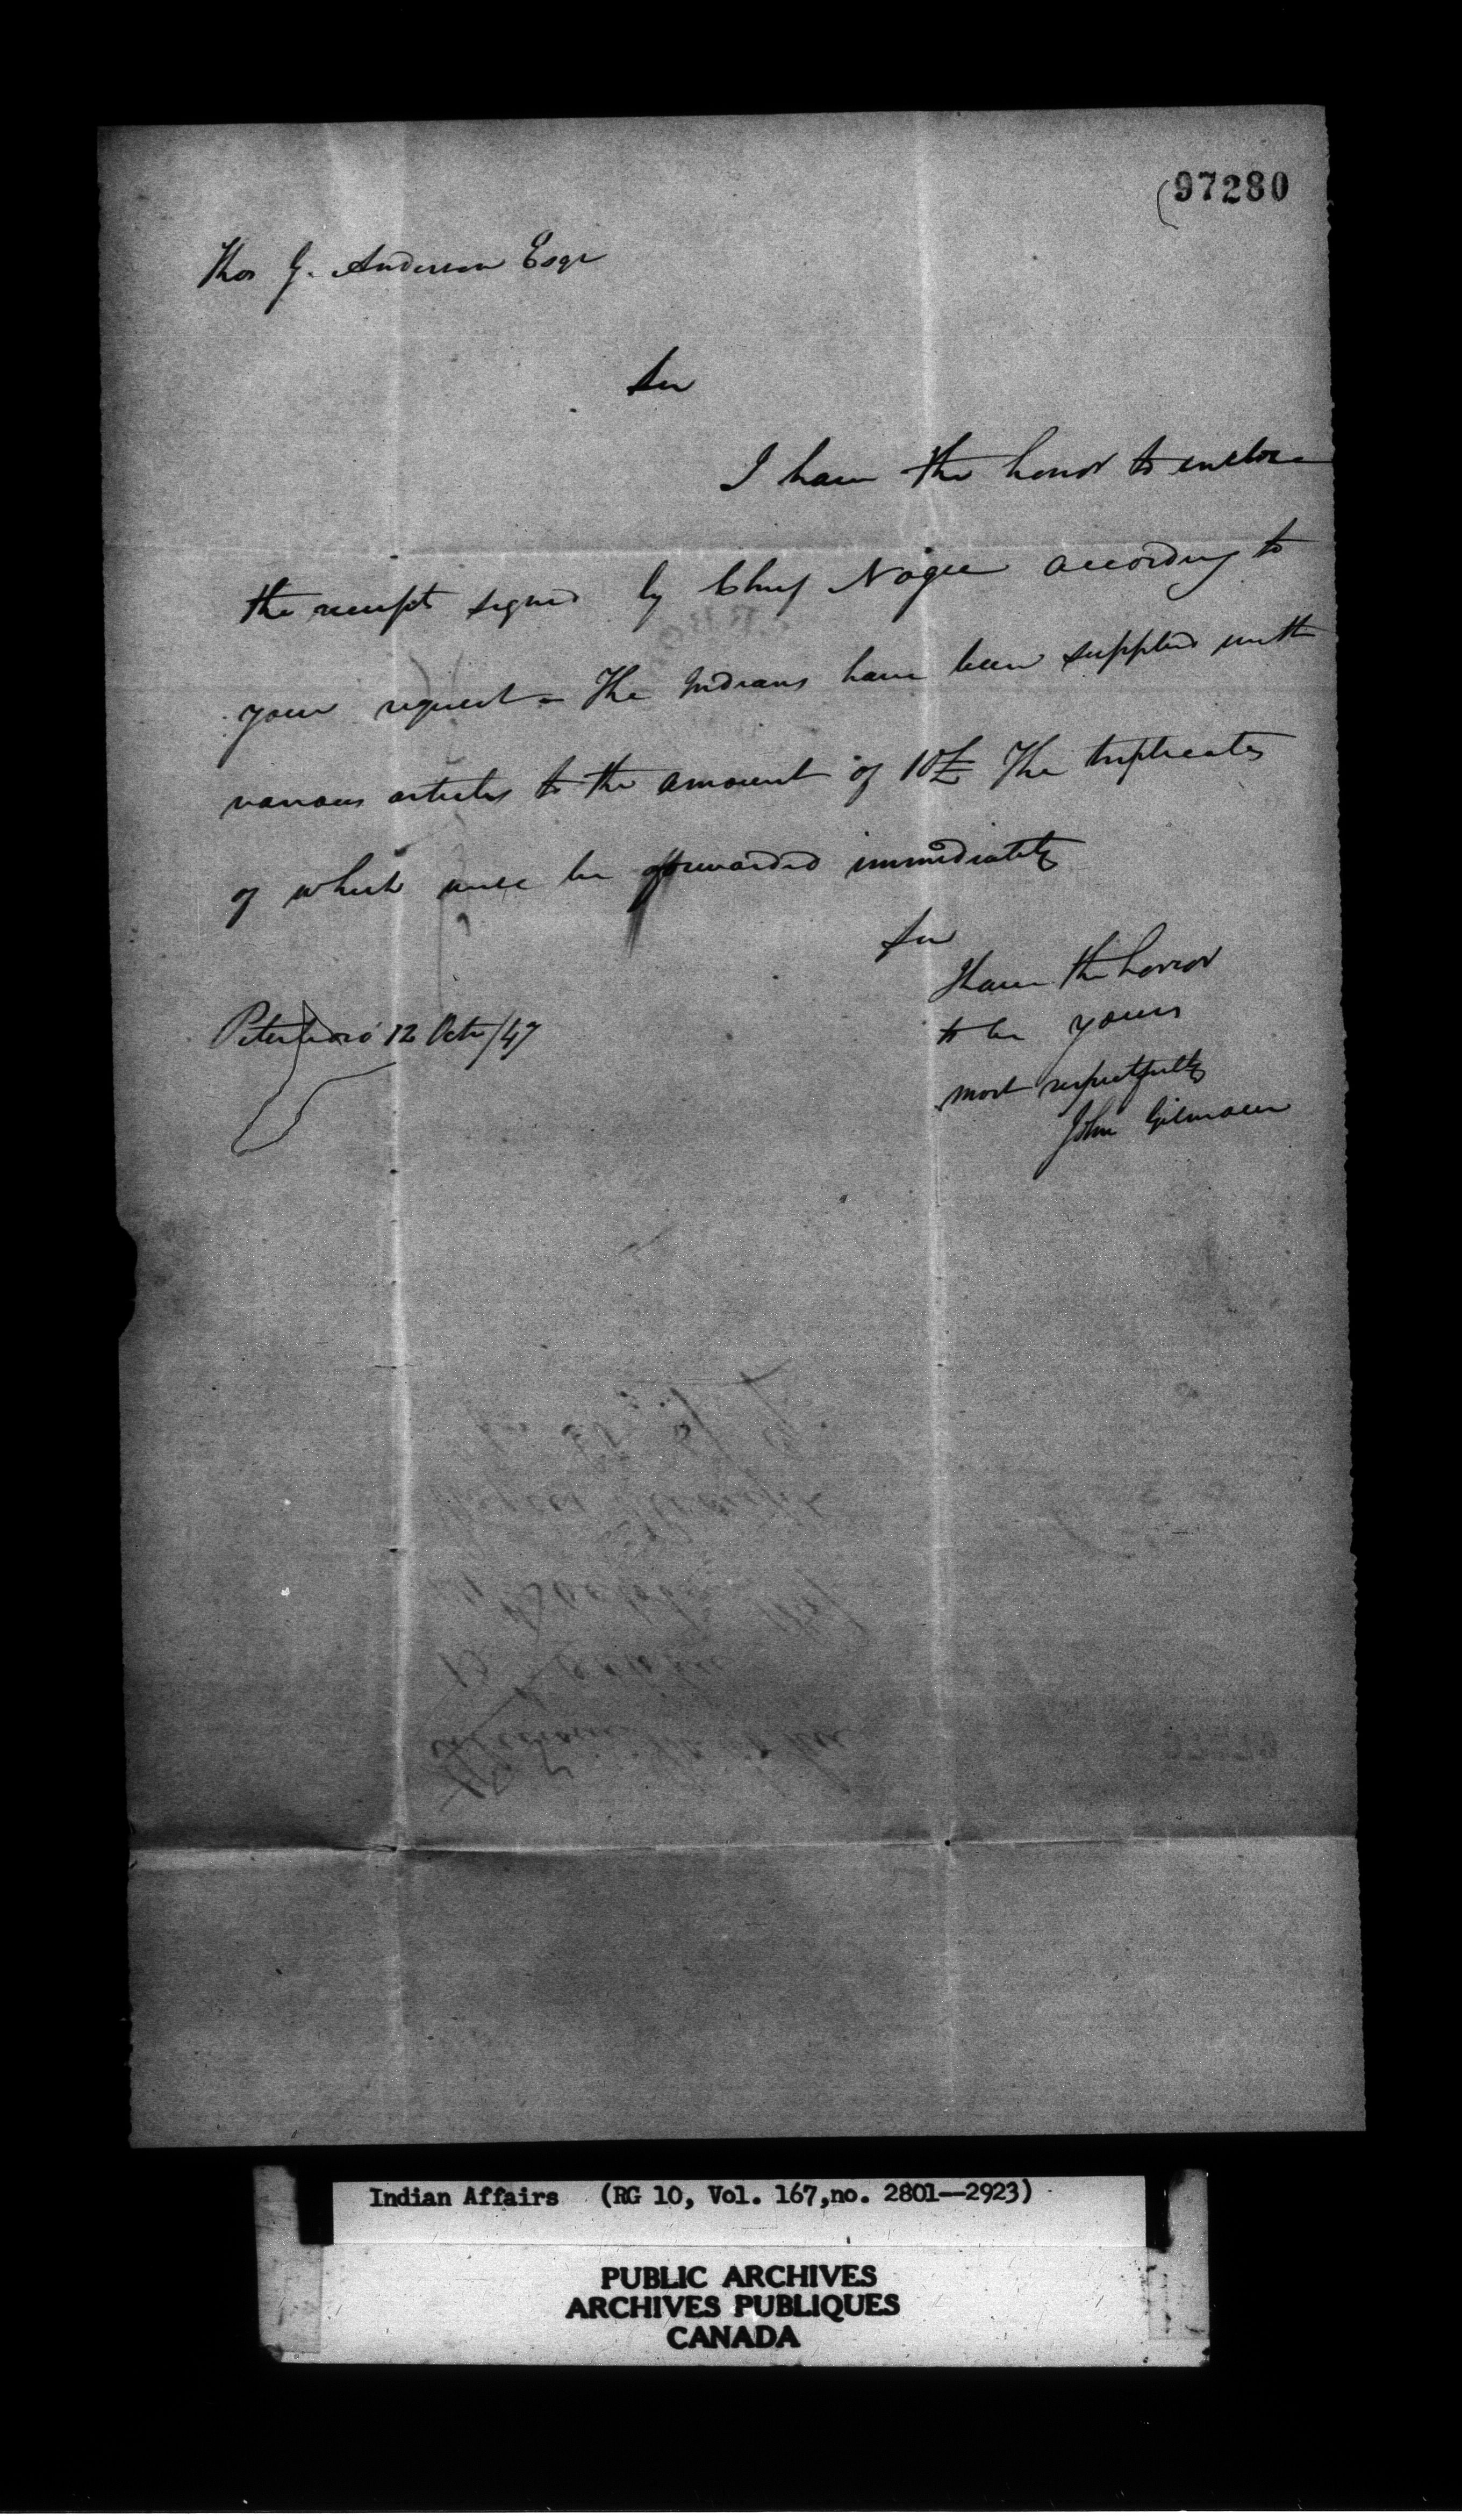 97280
Thos G. Anderson Esqr
Sir
I have the honor to enclose
the receipt signed by Chief Nogee according to
your request - The Indians have been supplied with
various articles to the amount of 10£ The triplicates
of which will be forwarded immediately
Sir
I have the honor
to be yours
most respectfully
John Gilmour
Peterboro' 12 Octr/47
Indian Affairs (RG 10, Vol. 167, no. 2801--2923)
PUBLIC ARCHIVES
ARCHIVES PUBLIQUES
CANADA